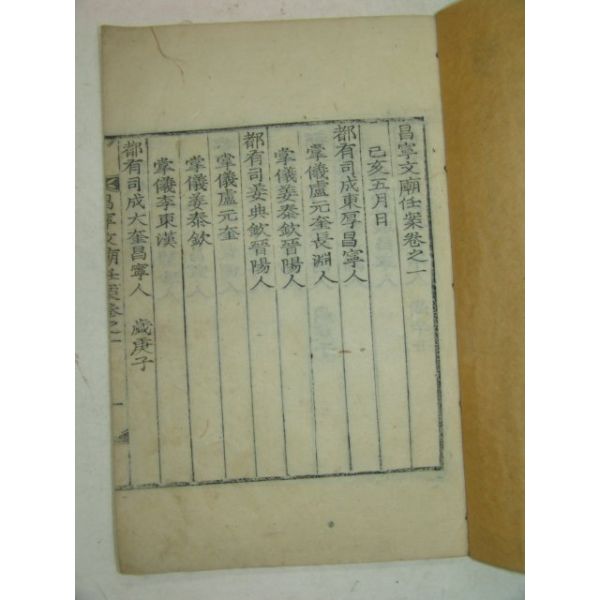 昌寧文廟任案卷之一
己亥五月日
都有司成東厚昌寧人
掌儀盧元奎長淵人
掌儀姜泰欽晉陽人
都有司姜典欽晉陽人
掌儀盧元奎
掌儀姜泰欽
掌儀李東漢
都有司成大奎昌寧人 歲庚子
昌寧文廟任案卷之一 一